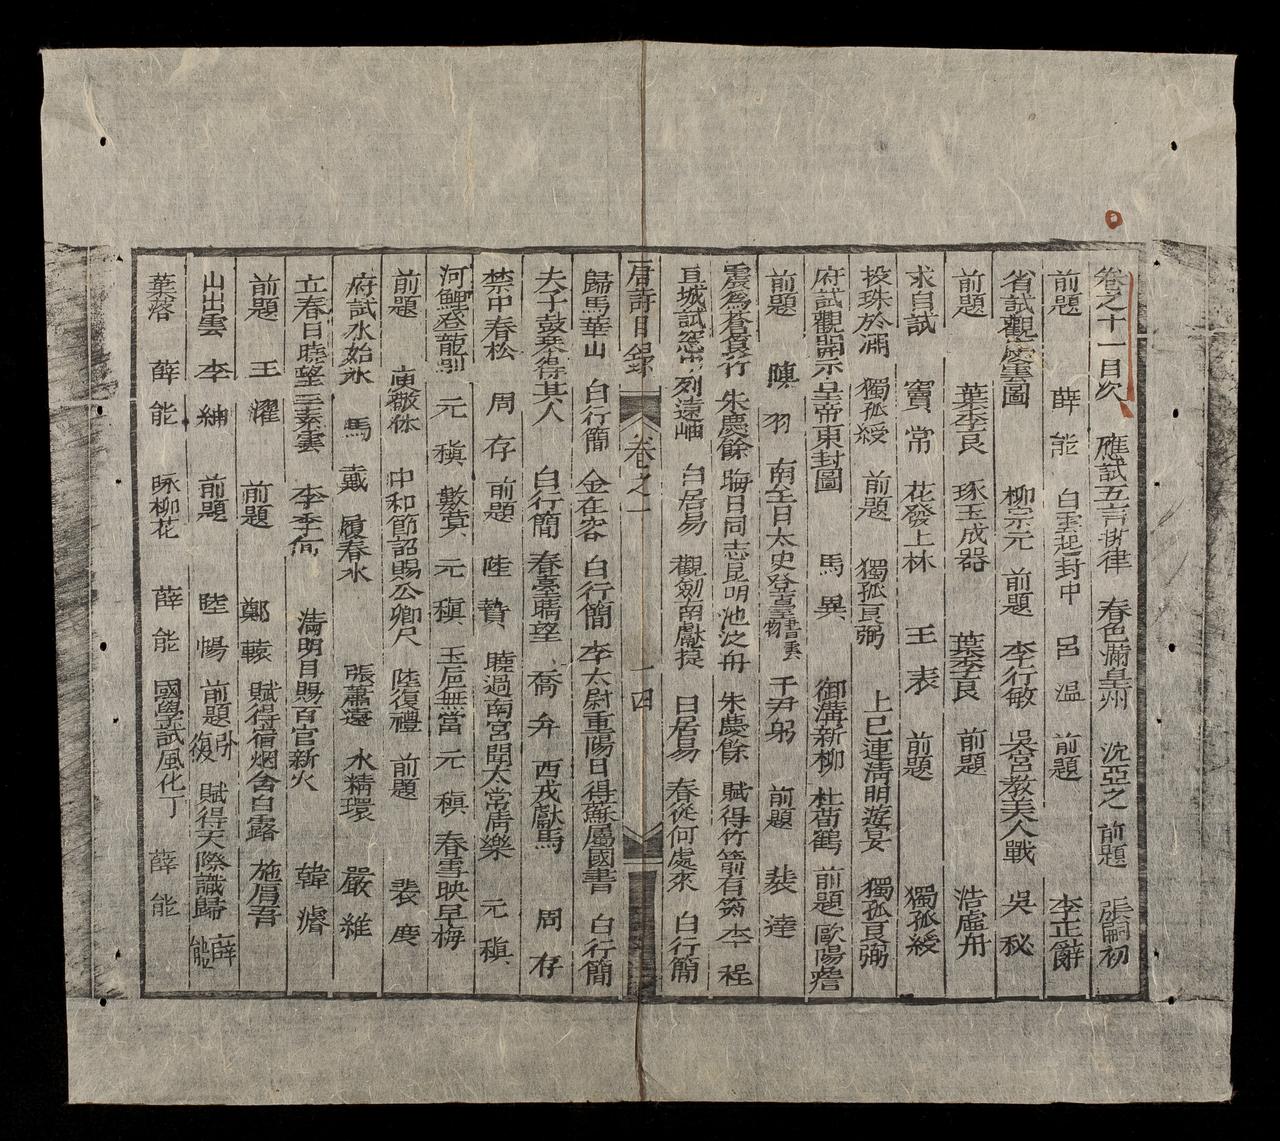 卷之十一目次 應試五言排律 春色滿皇州 沈亞之 前題 張嗣初
前題 薛能 白雲起封中 呂溫 前題 李正辭
省試觀慶雲圖 柳宗元 前題 李行敏 吳宮教美人戰 吳秘
前題 葉季良 琢玉成器 葉季良 前題 浩虛舟
求自試 竇常 花發上林 王表 前題 獨孤綬
投珠於淵 獨孤綬 前題 獨孤良弼 上巳連清明遊宴 獨孤良弼
府試觀開示呈帝東封圖 馬異 御溝新柳 杜荀鶴 前題 歐陽詹
前題 陳羽 南至日太史登臺書雲物 于尹躬 前題 裴達
震為蒼筤竹 朱慶餘 晦日同志昆明池泛舟 朱慶餘 賦得竹箭有筠 李程
宣城試窓中列遠岫 白居易 觀劍南獻捷 白居易 春從何處來 白行簡
唐詩目錄 卷之一 一四
歸馬華山 白行簡 金在容 白行簡 李太尉重陽日得蘇屬國書 白行簡
夫子鼓琴得其人 白行簡 春臺晴望 喬弁 西戎獻馬 周存
禁中春松 周存 前題 陸贄 曉過南宮聞太常清樂 元稹
河鯉登龍門 元稹 數蓂 元稹 玉卮無當 元稹 春雪映早梅
前題 庾敬休 中和節詔賜公卿尺 陸復禮 前題 裴度
府試水始冰 馬戴 履春冰 張蕭遠 水精環 嚴維
立春日曉望三素雲 李季何 清明日賜百官新火 韓濬
前題 王濯 前題 鄭轅 賦得宿烟含白露 施肩吾
山出雲 李紳 前題 陸暢 前題 張復 賦得天際識歸 薛能
葉落 薛能 咏柳花 薛能 國學試風化下 薛能